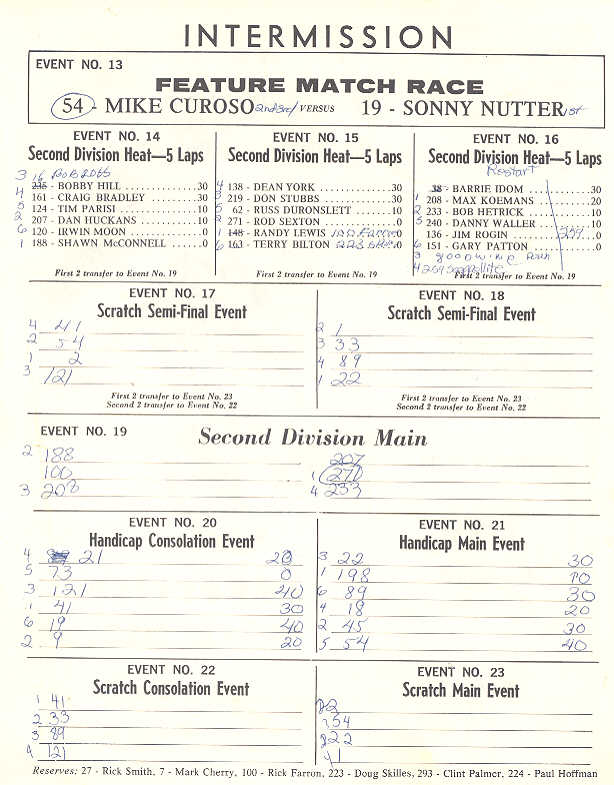 INTERMISSION
EVENT NO. 13
FEATURE MATCH RACE
54 - MIKE CUROSO 2nd 3rd VERSUS 19 - SONNY NUTTER 1st
EVENT NO. 14
Second Division Heat—5 Laps
16 BOB
3 235 - BOBBY HILL 30
4 161 - CRAIG BRADLEY 30
5 124 - TIM PARISI 10
2 207 - DAN HUCKANS 10
6 120 - IRWIN MOON 0
1 188 - SHAWN McCONNELL 0
First 2 transfer to Event No. 19
EVENT NO. 15
Second Division Heat—5 Laps
4 138 - DEAN YORK 30
3 219 - DON STUBBS 30
5 62 - RUSS DURONSLETT 10
271 - ROD SEXTON 0
1 148 - RANDY LEWIS 100 0
6 163 - TERRY BILTON 223 0
First 2 transfer to Event No. 19
EVENT NO. 16
Second Division Heat—5 Laps
Restart
38 - BARRIE IDOM 30
1 208 - MAX KOEMANS 20
2 233 - BOB HETRICK 10
5 240 - DANNY WALLER 10
136 - JIM ROGIN 0
6 151 - GARY PATTON 0
3
4 259
First 2 transfer to Event No. 19
EVENT NO. 17
Scratch Semi-Final Event
4 41
2 54
1 2
3 121
First 2 transfer to Event No. 23
Second 2 transfer to Event No. 22
EVENT NO. 18
Scratch Semi-Final Event
2 1
3 33
4 89
1 22
First 2 transfer to Event No. 23
Second 2 transfer to Event No. 22
EVENT NO. 19
Second Division Main
2 188
100
3 208
207
1 270
4 233
EVENT NO. 20
Handicap Consolation Event
4 21 20
5 73 0
3 121 40
1 41 30
6 19 40
2 9 20
EVENT NO. 21
Handicap Main Event
3 22 30
1 198 10
6 89 30
4 18 20
2 45 30
5 54 40
EVENT NO. 22
Scratch Consolation Event
1 41
2 33
3 89
4 121
EVENT NO. 23
Scratch Main Event
2
54
22
1
Reserves: 27 - Rick Smith, 7 - Mark Cherry, 100 - Rick Farron, 223 - Doug Skilles, 293 - Clint Palmer, 224 - Paul Hoffman